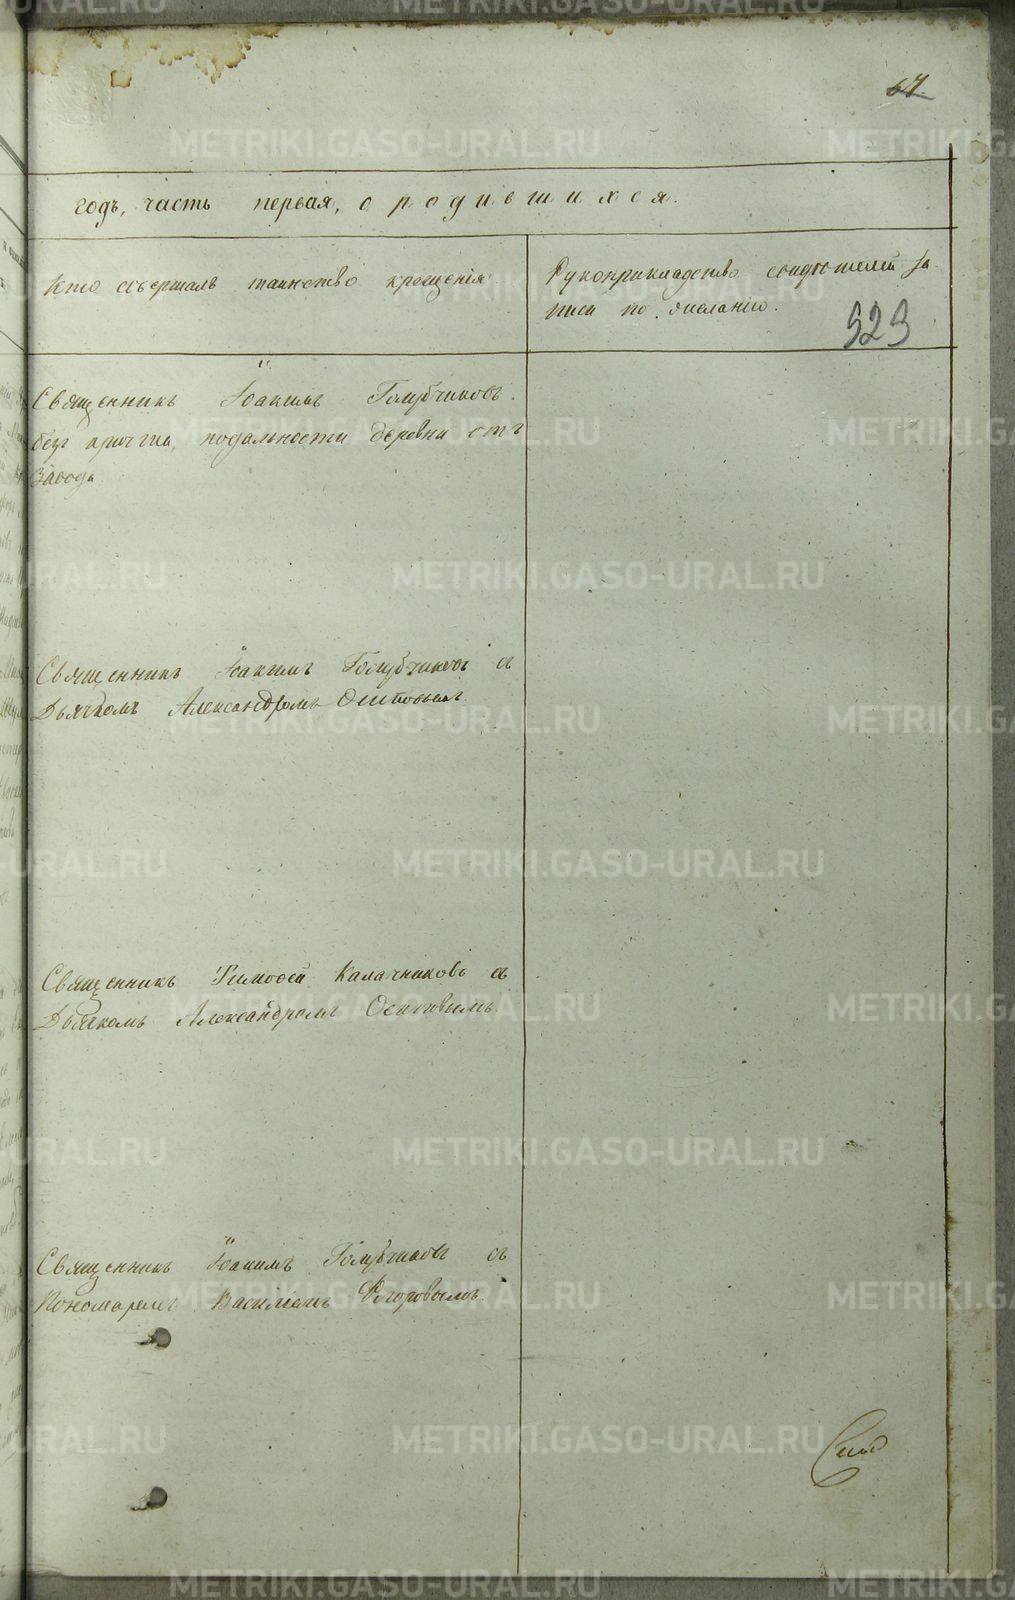 67
годъ, часть первая, о родившихся.
Кто совершалъ таинство крещенія
Рукоприкладство свидѣтелей за
писи по желанію.
523
Священникъ Іоакимъ Голубчиковъ.
безъ причта, подальности деревни отъ
Завода
Священникъ Іоакимъ Голубчиковъ съ
Дьячкомъ Александромъ Осиповымъ
Священникъ Тимофей Калачниковъ съ
Дьячкомъ Александромъ Осиповымъ.
Священникъ Іоакимъ Голубчиковъ съ
Пономаремъ Василіемъ
METRIKI.GASO-URAL.RU